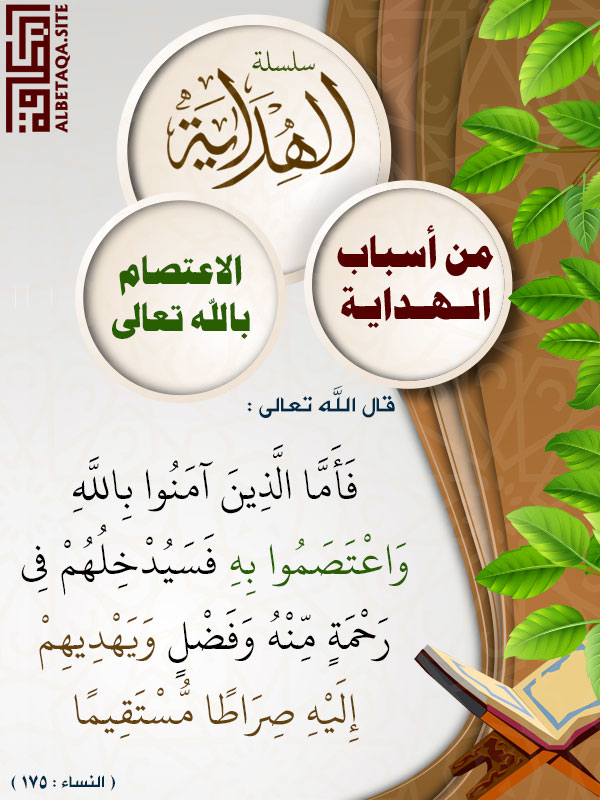 البطاقة
ALBETAQA.SITE
سلسلة
الهداية
من أسباب
الـهـدايـة
الاعتصام
بالله تعالى
قال اللَّه تعالى :
فَأَمَّا الَّذِينَ آمَنُوا بِاللَّهِ
وَاعْتَصَمُوا بِهِ فَسَيُدْخِلُهُمْ فِى
رَحْمَةٍ مِّنْهُ وَفَضْلٍ وَيَهْدِيهِمْ
إِلَيْهِ صِرَاطًا مُّسْتَقِيمًا
( النساء : ١٧٥ )